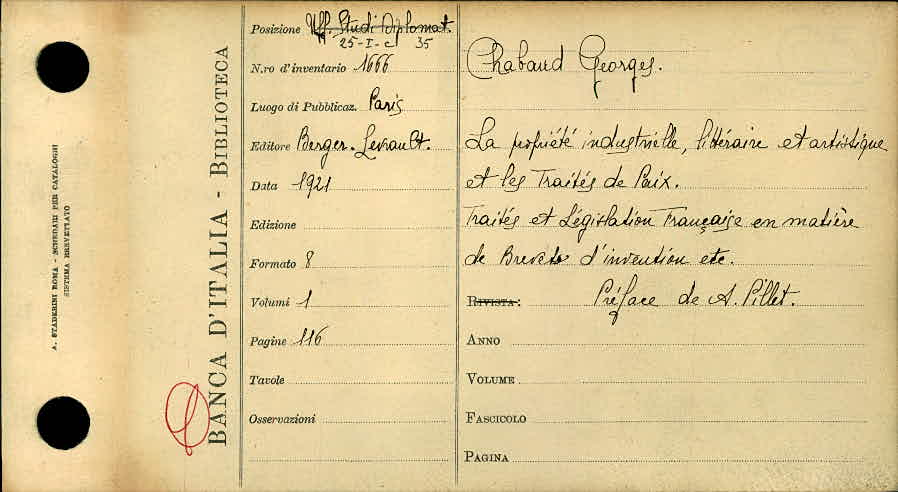 A. STADERINI ROMA - SCHEDARI PER CATALOGHI
SISTEMA BREVETTATO
BANCA D'ITALIA - BIBLIOTECA
Posizione Uff. Studi Diplomat.
25-I-c 35
N.ro d'inventario 1666
Luogo di Pubblicaz. Paris
Editore Berger-Levrault.
Data 1921
Edizione
Formato 8
Volumi 1
Pagine 116
Tavole
Osservazioni
Chabaud Georges.
La propriété industrielle, littéraire et artistique
et les Traités de Paix.
Traités et Législation Française en matière
de Brevets d'invention etc.
RIVISTA: Préface de A. Pillet.
ANNO
VOLUME
FASCICOLO
PAGINA